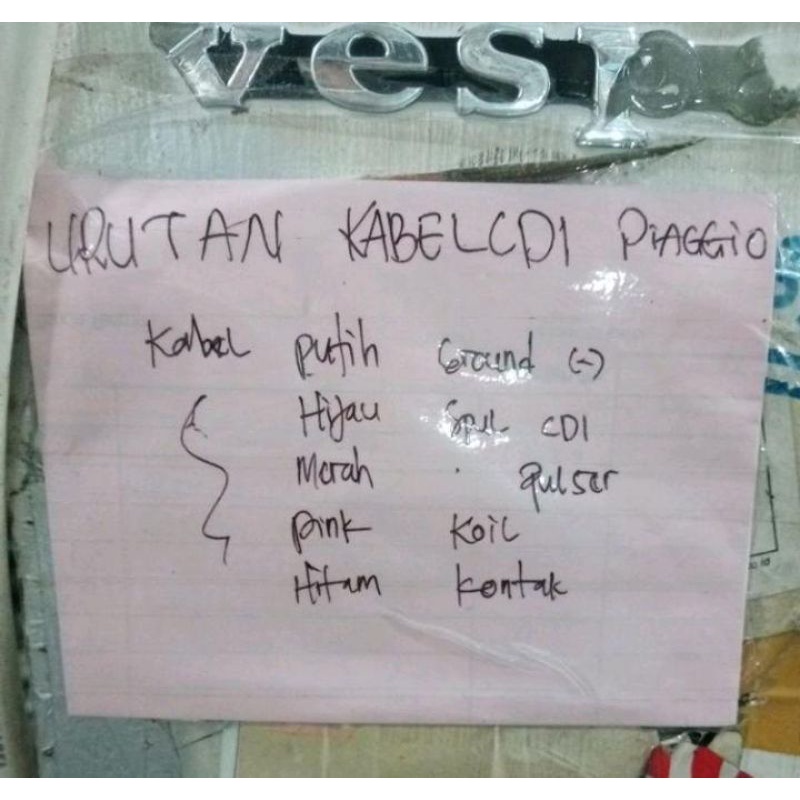 vesp
URUTAN KABEL CDI PIAGGIO
Kabel putih Ground (-)
Hijau Spul CDI
Merah . pulser
pink Koil
Hitam kontak